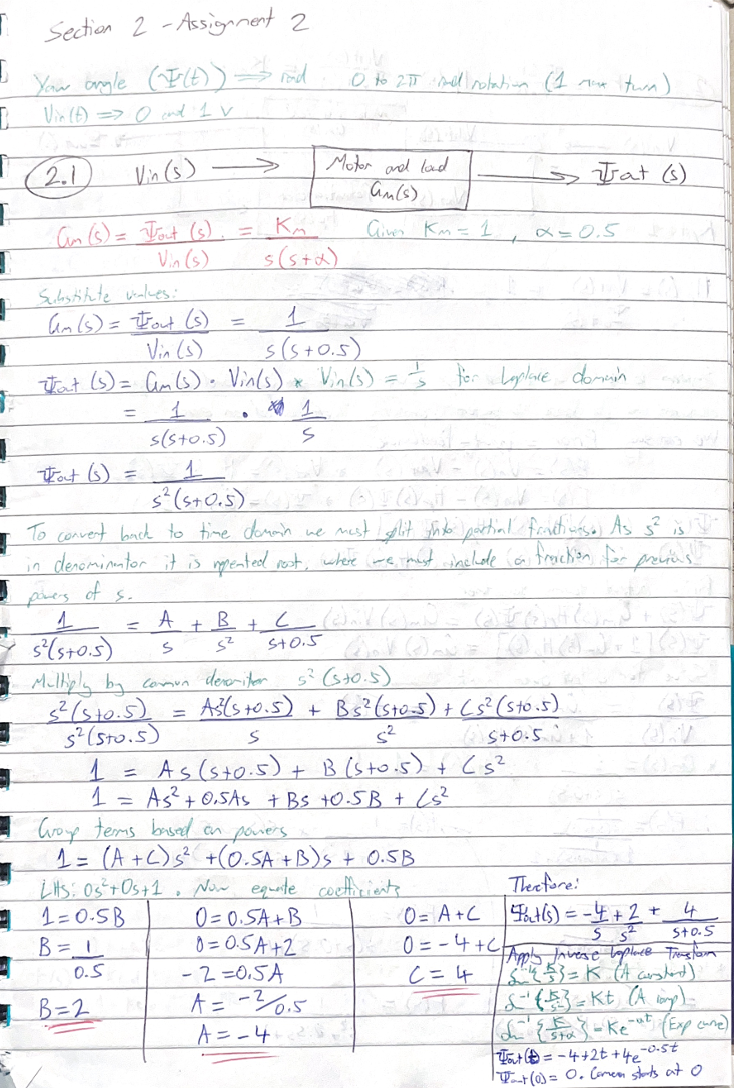 Section 2 - Assignment 2
Yaw angle (Ψ(t)) ⟹ rad 0 to 2π rad rotation (1 max turn)
Vin(t) ⟹ 0 and 1 V
2.1 Vin(s) → Motor and load Gm(s) → Ψout (s)
Gm(s) = Ψout (s) / Vin(s) = Km / s(s+α) Given Km = 1 , α = 0.5
Substitute values:
Gm(s) = Ψout (s) / Vin(s) = 1 / s(s+0.5)
Ψout (s) = Gm(s) · Vin(s) * Vin(s) = 1/s for Laplace domain
= 1 / s(s+0.5) · 1 / s
Ψout (s) = 1 / s²(s+0.5)
To convert back to time domain we must split into partial fractions. As s² is
in denominator it is repeated root, where we must include a fraction for previous
powers of s.
1 / s²(s+0.5) = A / s + B / s² + C / s+0.5
Multiply by common denomitor s²(s+0.5)
s²(s+0.5) / s²(s+0.5) = As²(s+0.5) / s + Bs²(s+0.5) / s² + Cs²(s+0.5) / s+0.5
1 = As(s+0.5) + B(s+0.5) + Cs²
1 = As² + 0.5As + Bs + 0.5B + Cs²
Group terms based on powers
1 = (A+C)s² + (0.5A+B)s + 0.5B
LHS: 0s²+0s+1 . Now equate coefficients
1 = 0.5B
B = 1 / 0.5
B = 2
0 = 0.5A+B
0 = 0.5A+2
-2 = 0.5A
A = -2/0.5
A = -4
0 = A+C
0 = -4+C
C = 4
Therefore:
Ψout(s) = -4 / s + 2 / s² + 4 / s+0.5
Apply Inverse Laplace Transform
L⁻¹{K/s} = K (A constant)
L⁻¹{K/s²} = Kt (A ramp)
L⁻¹{K/s+α} = Ke^-αt (Exp curve)
Ψout(t) = -4+2t+4e^-0.5t
Ψout(0) = 0. Camera starts at 0